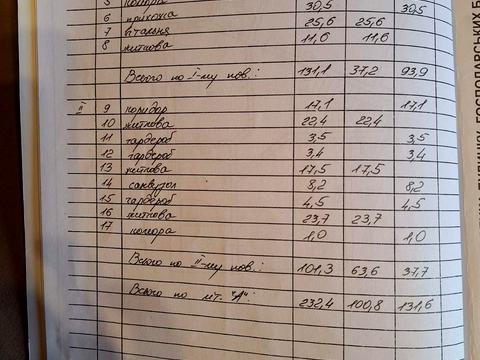 5 комора 30,5 30,5
6 прихожа 25,6 25,6
7 їдальня
8 житлова 11,6 11,6
Всього по I-му пов.: 131,1 37,2 93,9
II 9 коридор 17,1 17,1
10 житлова 22,4 22,4
11 гардероб 3,5 3,5
12 гардероб 3,4 3,4
13 житлова 17,5 17,5
14 санвузол 8,2 8,2
15 гардероб 4,5 4,5
16 житлова 23,7 23,7
17 комора 1,0 1,0
Всього по II-му пов.: 101,3 63,6 37,7
Всього по літ. "А": 232,4 100,8 131,6
ГОСПОДАРСЬКИХ Б